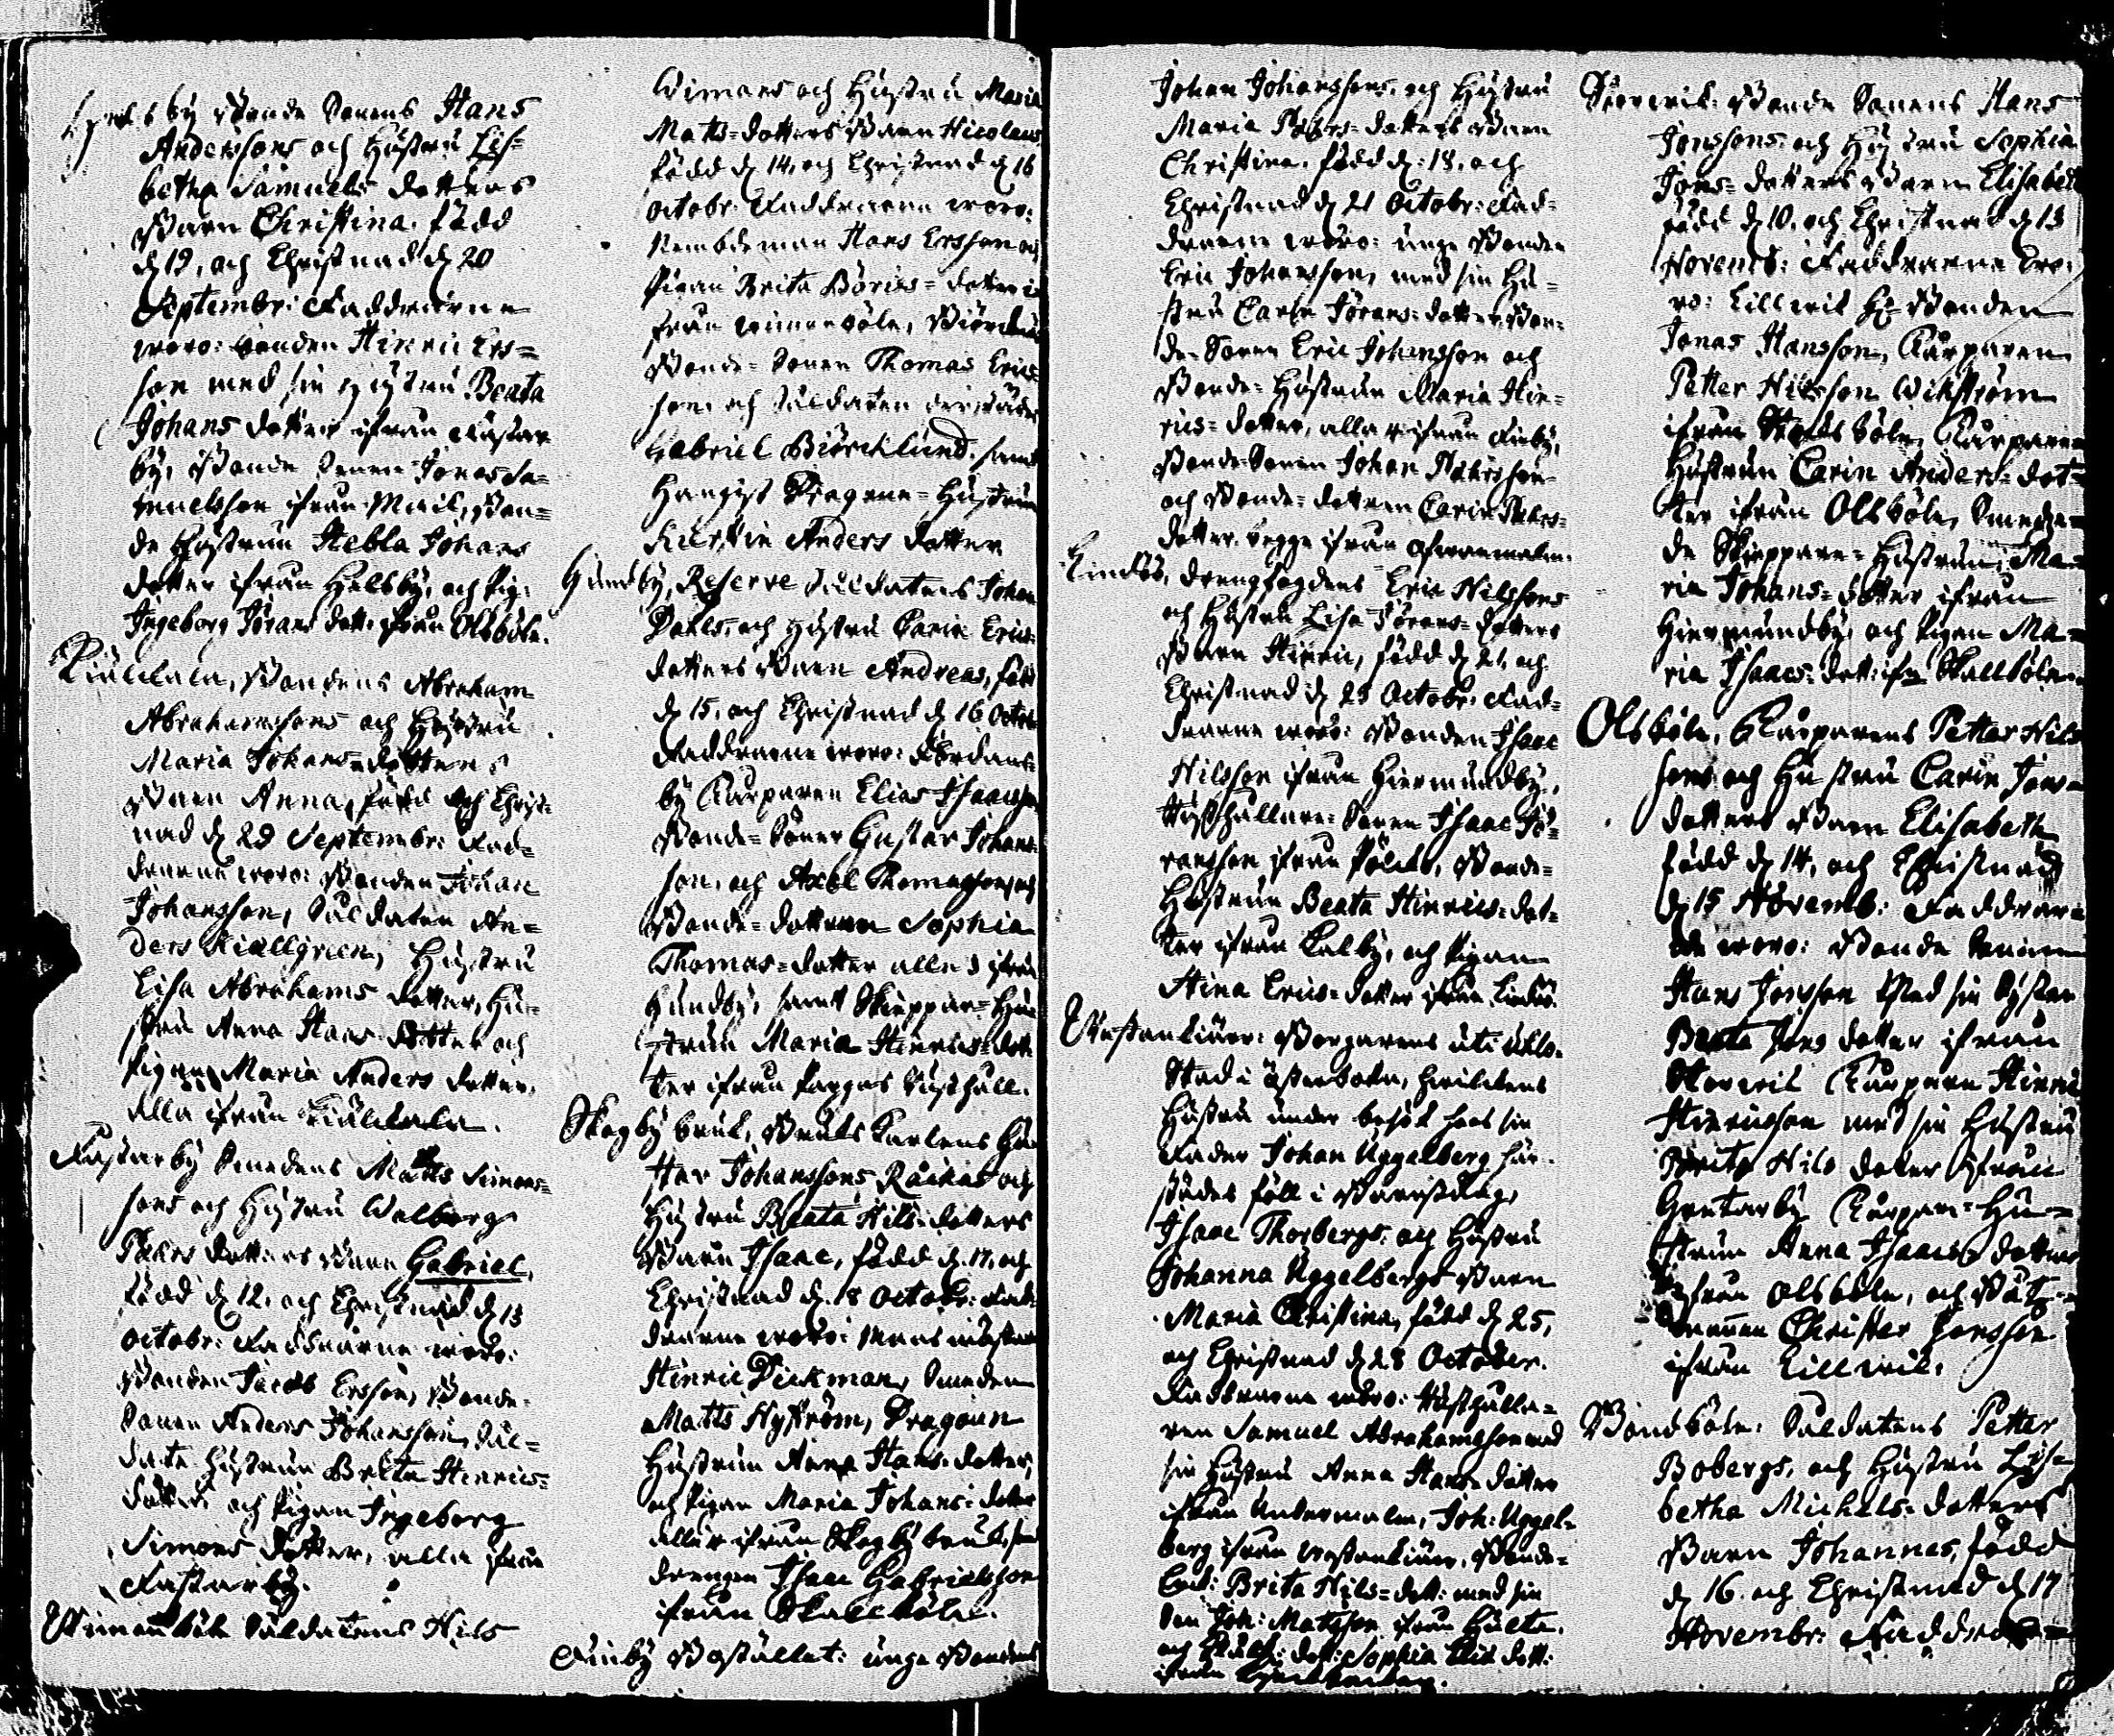 by Bonde Sonens Hans
Anderssons och Hustru Lis-
betha Samuels dotters
Barn Christina. född
d 19, och Christnad d 20
Septembr: Faddrarne
woro: bonden Hinric Ers-
son med sin Hustru Beata
Johans dotter ifrån Fastar
by, Bonde Sonen Jonas Sa-
muelsson ifrån Mail, Bon-
de Hustrun Hebla Johans
dotter ifrån Helsby, och Pig:
Ingeborg Jörans dott. ifrån Olsböle.
Bondens Abraham
Abrahamssons och Hustru
Maria Johans=dotters
Barn Anna, född och Christ-
nad d 29 Septembr: Fad-
drarne woro: Bonden Johan
Johansson, Soldaten An-
ders Kiällgren, Hustru
Lisa Abrahams dotter, Hu-
stru Anna Hans dotter och
Pigan Maria Anders dotter.
alla ifrån
Fastarby Smedens Matts Simons=
sons och Hustru Walborg
Påhrs dotters Barn Gabriel,
född d 12. och Christnad d 13
octobr: Faddrarne woro:
Bonden Jacob Ersson, Bonde-
Sonen Anders Johansson, Sol-
date Hustrun Brita Hinrics=
dotter och Pigan Ingeborg
Simons dotter, alla ifrån
Fastarby.
Wimanböle Soldatens Nils
Wimans och Hustru Maria
Matts=dotters Barn Nicolaus,
född d 14, och Christnad d 16
octobr. Faddrarne woro:
Nembdeman Hans Ersson och
Pigan Brita Böriis=dotter
från Wimanböle,
Bonde=Sonen Thomas Erics-
son, och Soldaten
Gabriel Biörcklund. samt
Hangist Dragone=Hustrun
Kierstin Anders dotter
Gundby, Reserve Soldatens Johan
Dahls, och Hustru Carin Erics-
dotters Barn Andreas, född
d 15. och Christnad d 16 Octobr
Faddrarne woro: Nordans-
by Torparen Elias Isaacsson
Bonde=Soner Gustav Johans-
son, och Axel Thomasson och
Bonde=dottren Sophia
Thomas=dotter alle 3 ifrån
Gundby, samt Skieppar=Hu-
strun Maria Hinrics=dot-
ter ifrån Pargas Rusthåll.
Skogby bruk, Bruks Karlens Gu-
stav Johanssons och
Hustru Beata Nils=dotters
Barn Isaac, född d. 17. och
Christnad d. 18 Octobr: Fad-
drarne woro:
Hinric Dickman, Smeden
Matts Nyström, Dragoun
Hustrun Anna Hans=dotter,
och Pigan Maria Johans=dotter
alle ifrån Skogby bruk, samt
drengen Isaac Gabrielsson
ifrån Skallböle.
Finby Bostället: unge Bondens
Johan Johanssons, och Hustru
Maria Påhrs=dotters Barn
Christina. född d: 18. och
Christnad d 21 Octobr: Fad-
drarne woro: unge Bonden
Eric Johansson, med sin Hu-
stru Carin Jörans=dotter, Bon-
de-Sonen Eric Johansson och
Bonde=Hustrun Maria Hin-
rics=dotter, alla 4 ifrån Finby,
Bonde-Sonen Johan Påhrsson
och Bonde=dottren Carin Påhrs=
dotter. begge ifrån Öfvermalm.
Lindö, drengfogdens Eric Nilssons
och Hustru Lisa Jörans=dotters
Barn Hinric, född d 21, och
Christnad d 23 Octobr: Fad-
drarne woro: Bonden Isaac
Nilsson ifrån Hiermundby,
Rusthållare-Sonen Isaac Jö-
ransson ifrån Böleby, Bonde-
Hustrun Beata Hinrics=dot-
ter ifrån Lalby, och Pigan
Stina Erics=dotter ifrån Lindö.
Westankiärr: Borgarens uti Uhlo-
Stad i Österbotn, hwilckens
Hustru under besök hos sin
Fader Johan Uggelberg här-
städes föll i Barnsäng,
Isaac Thorbergs: och Hustru
Johanna Uggelbergs Barn
Maria Christina, född d 25,
och Christnad d 28 October.
Faddrarne woro: Rusthålla-
ren Samuel Abrahamsson med
sin Hustru Anna Hans dotter
ifrån Undermalm, Joh: Uggel-
berg ifrån Westankiärr, Bonde-
Enk: Brita Nils=dott: med sin
Son Joh: Matsson ifrån Hulta.
och dott: Sophia dott:
ifrån
Storwik: Bonde Sonens Hans
Jonssons, och Hustru Sophia
Jons=dotters Barn Elisabet
född d 10. och Christnad d 13
Novemb: Faddrarne wo-
ro: Lillwik Bonden
Jonas Hansson, Torparen
Petter Nilsson Wikström
ifrån Torparen
Hustrun Carin Anders=dot-
ter ifrån Olsböle, Smeds-
de Skieppare=Hustrun Ma-
ria Johans=dotter ifrån
Hiermundby, och Pigan Ma-
ria Isaacs=dott: ifr Skallböle.
Olsböle, Torparens Petter Nils
sons och Hustru Carin Jons-
dotters Barn Elisabeth
född d 14, och Christnad
d 15 Novemb: Faddrar-
ne woro: Bonde Sonen
Hans Jonsson Med sin Syster
Beata Jons dotter ifrån
Storwik Torparn Hinric
Hinricsson med sin Hustru
Brita Nils dotter ifrån
Gretarby Torpare=Hu-
strun Anna Isaacs dotter
ifrån Olsböle, och Båtz-
mannen Christer Jonsson
ifrån Lillwik.
Bondböle: Soldatens Petter
Bobergs, och Hustru Lis-
betha Michels=dotters
Barn Johannes, född
d 16. och Christnad d 17
Novembr: Faddrar